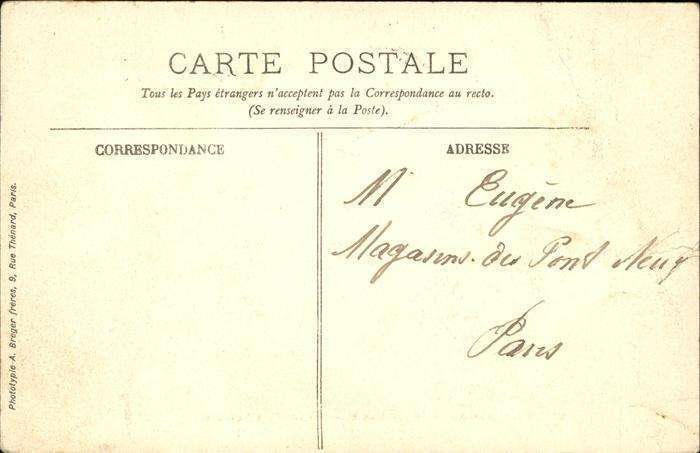 CARTE POSTALE
Tous les Pays étrangers n'acceptent pas la Correspondance au recto.
(Se renseigner à la Poste).
CORRESPONDANCE
ADRESSE
M Eugène
Magasins des Pont Neuf
Paris
Phototypie A. Breger frères, 9, Rue Thénard, Paris.